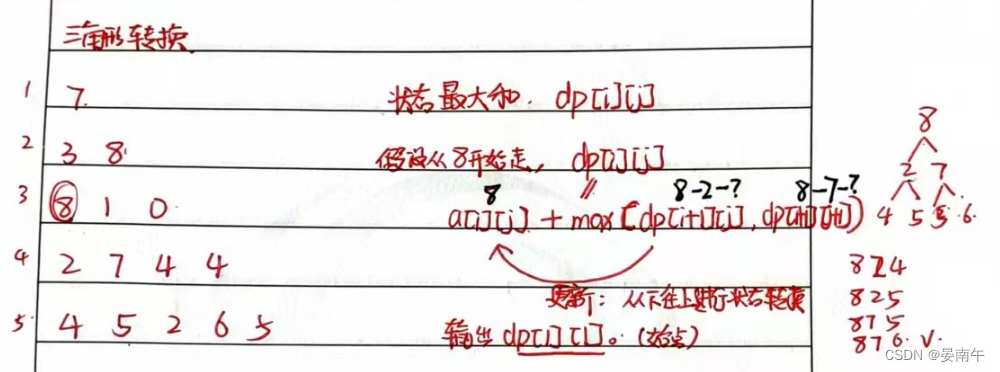 三角形转换
1 7 状态最大和. dp[i][j]
2 3 8 假设从8开始走, dp[i][j]
3 8 1 0 8 8-2-? 8-7-?
a[i][j] + max(dp[i+1][j], dp[i+1][j+1])
4 2 7 4 4
更新: 从下往上进行状态转换
5 4 5 2 6 5 输出dp[1][1]。(始点)
8
2 7
4 5 5 6
8 2 4
8 2 5
8 7 5
8 7 6 √
CSDN @晏南午